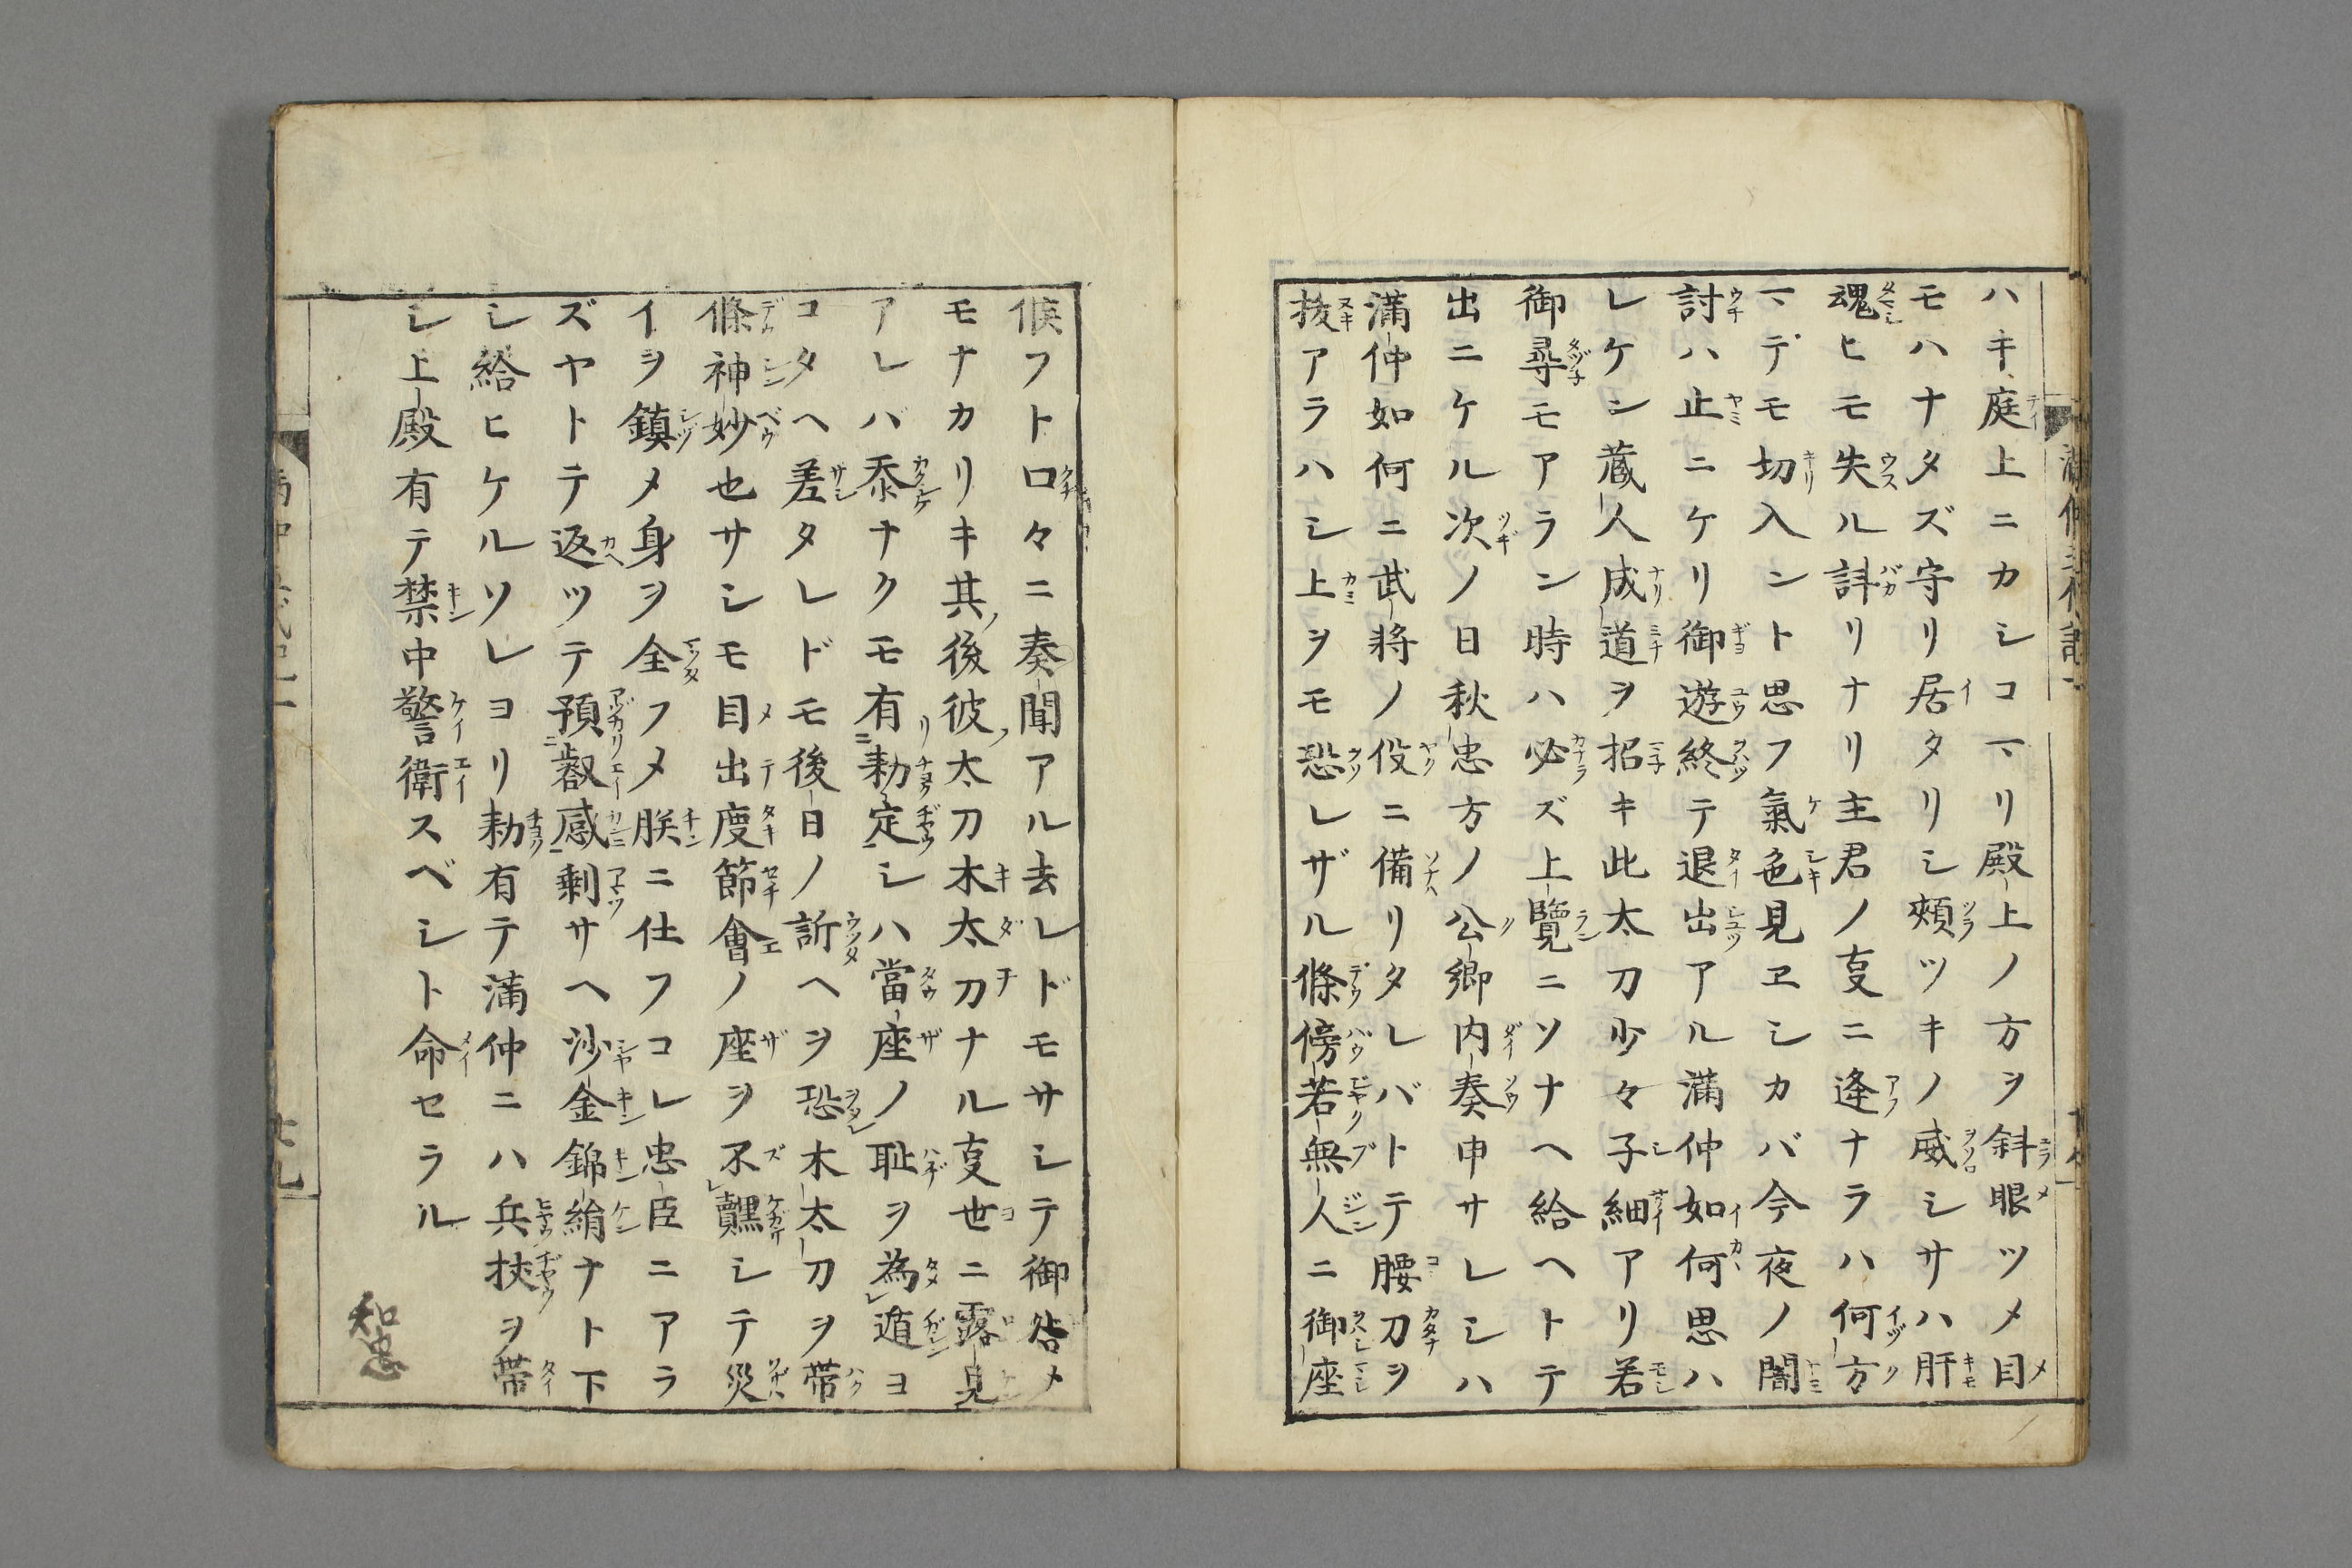 ハキ庭上ニカシコマリ殿上ノ方ヲ斜眼ツメ目
モハナタズ守リ居タリシ頬ツキノ威シサハ肝
魂ヒモ失ル計リナリ主君ノ叓ニ逢ナラハ何方
マデモ切入ント思フ氣色見ヱシカバ今夜ノ闇
討ハ止ニケリ御遊終テ退出アル満仲如何思ハ
レケン蔵人成道ヲ招キ此太刀少々子細アリ若
御尋モアラン時ハ必ズ上覽ニソナヘ給ヘトテ
出ニケル次ノ日秋忠方ノ公卿内奏申サレシハ
満仲如何ニ武将ノ役ニ備リタレバトテ腰刀ヲ
抜アラハシ上ヲモ恐レザル條傍若無人ニ御座
候フト口々ニ奏聞アル去レドモサシテ御咎メ
モナカリキ其後彼太刀木太刀ナル叓世ニ露見
アレバ忝ナクモ有勅定シハ當座ノ恥ヲ為遁ヨ
コタヘ差タレドモ後日ノ訴ヘヲ恐木太刀ヲ帯
條神妙也サシモ目出度節會ノ座ヲ不黷シテ災
イヲ鎮メ身ヲ全フメ朕ニ仕フコレ忠臣ニアラ
ズヤトテ返ツテ預叡感剰サヘ沙金錦絹ナト下
シ給ヒケルソレヨリ勅有テ満仲ニハ兵杖ヲ帯
シ上殿有テ禁中警衛スベシト命セラル
知忠